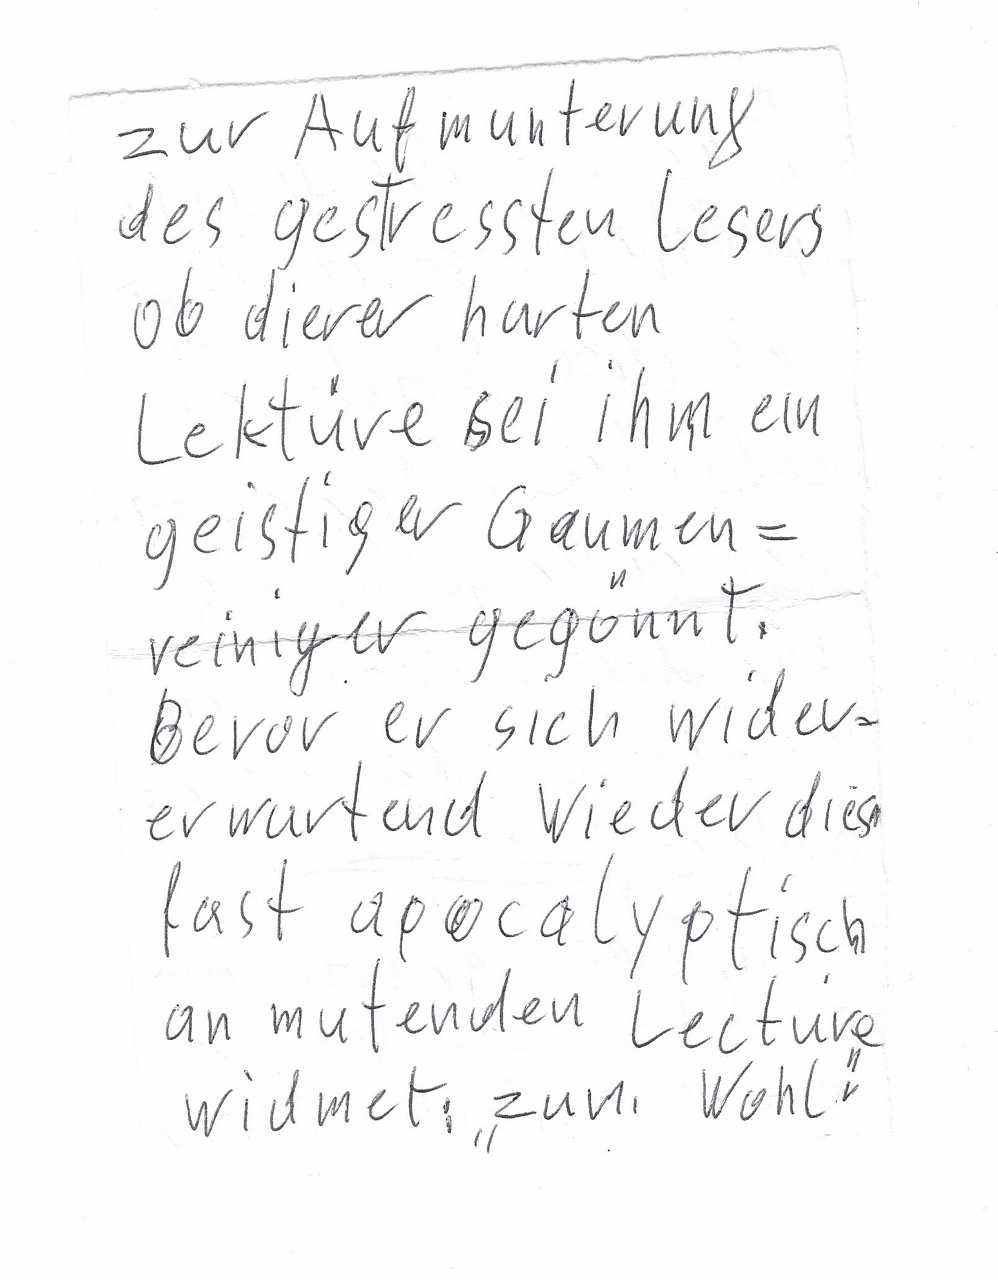 zur Aufmunterung
des gestressten Lesers
ob dieser harten
Lektüre sei ihm ein
geistiger Gaumen=
reiniger gegönnt.
Bevor er sich wider=
erwartend wieder
fast apocalyptisch
an mutenden Lectüre
widmet: „zum Wohl"